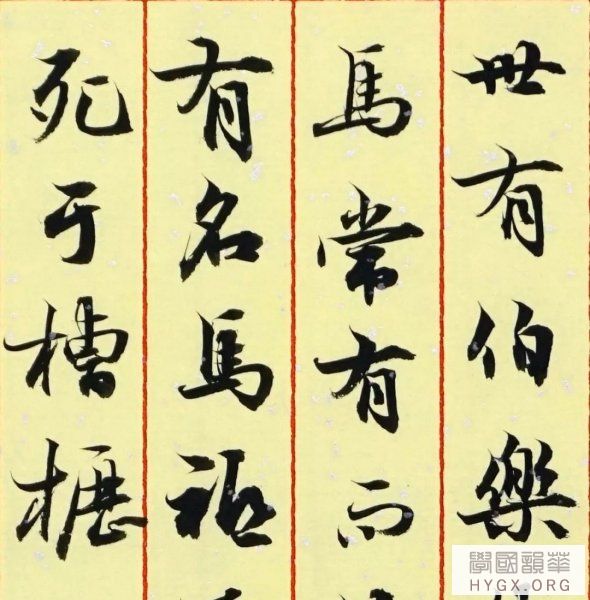 世有伯樂
馬常有而
有名馬祗
死于槽櫪
學國韻華
HYGX.ORG